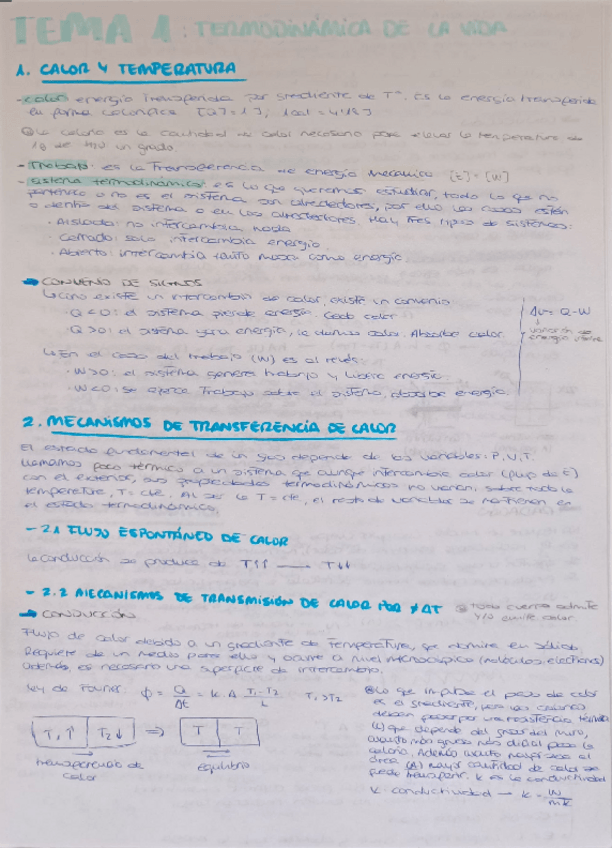 TEMA 1: TERMODINÁMICA DE LA VIDA
1. CALOR Y TEMPERATURA
- Calor: energía transferida por gradiente de Tª. Es la energía transferida
en forma calorífica [Q] = 1 J, 1 cal = 4'18 J
la caloría es la cantidad de calor necesario para elevar la temperatura de
1g de H2O un grado.
- Trabajo: es la transferencia de energía mecánica [E] = [W]
- Sistema termodinámico: es lo que queremos estudiar, todo lo que no
o no es el sistema son alrededores, por ello las cosas están
o dentro del sistema o en los alrededores. Hay tres tipos de sistemas:
· Aislado: no intercambia nada
· Cerrado: solo intercambia energía
· Abierto: intercambia tanto masa como energía
➡ CONVENIO DE SIGNOS
↳ Como existe un intercambio de calor, existe un convenio
· Q < 0: el sistema pierde energía. Cede calor
· Q > 0: el sistema gana energía, le damos calor. Absorbe calor.
ΔU = Q - W
↓
variación de
energía interna
↳ En el caso del trabajo (W) es al revés:
· W > 0: el sistema genera trabajo y libera energía.
· W < 0: se ejerce trabajo sobre el sistema, absorbe energía.
2. MECANISMOS DE TRANSFERENCIA DE CALOR
El estado fundamental de un gas depende de las variables: P, V, T.
Llamamos foco térmico a un sistema que aunque intercambie calor (flujo de E)
con el exterior, sus propiedades termodinámicas no varían, sobre todo la
temperatura, T = cte. Al ser la T = cte, el resto de variables se mantienen en
el estado termodinámico.
- 2.1 FLUJO ESPONTÁNEO DE CALOR
La conducción se produce de T↑↑ ⟶ T↓↓
- 2.2 MECANISMOS DE TRANSMISIÓN DE CALOR POR ≠ ΔT
Todo cuerpo admite
y/o emite calor.
➡ CONDUCCIÓN
Flujo de calor debido a un gradiente de temperatura, que domina en sólidos.
Requiere de un medio para ello y ocurre a nivel microscópico (moléculas, electrones)
Además, es necesario una superficie de intercambio.
Ley de Fourier: ϕ = Q/Δt = k · A (T1 - T2)/L T1 > T2
T1 ↑ T2 ↓ ⇒ T T
transferencia de
calor
equilibrio
Lo que impulsa el paso de calor
es el gradiente, pero las calorías
deben pasar por una resistencia térmica
(L) que depende del grosor del muro,
cuanto más grueso más difícil pasa la
caloría. Además cuanto mayor sea el
área (A) mayor cantidad de calor se
puede transferir. k es la conductividad
k: conductividad → k = W/mK